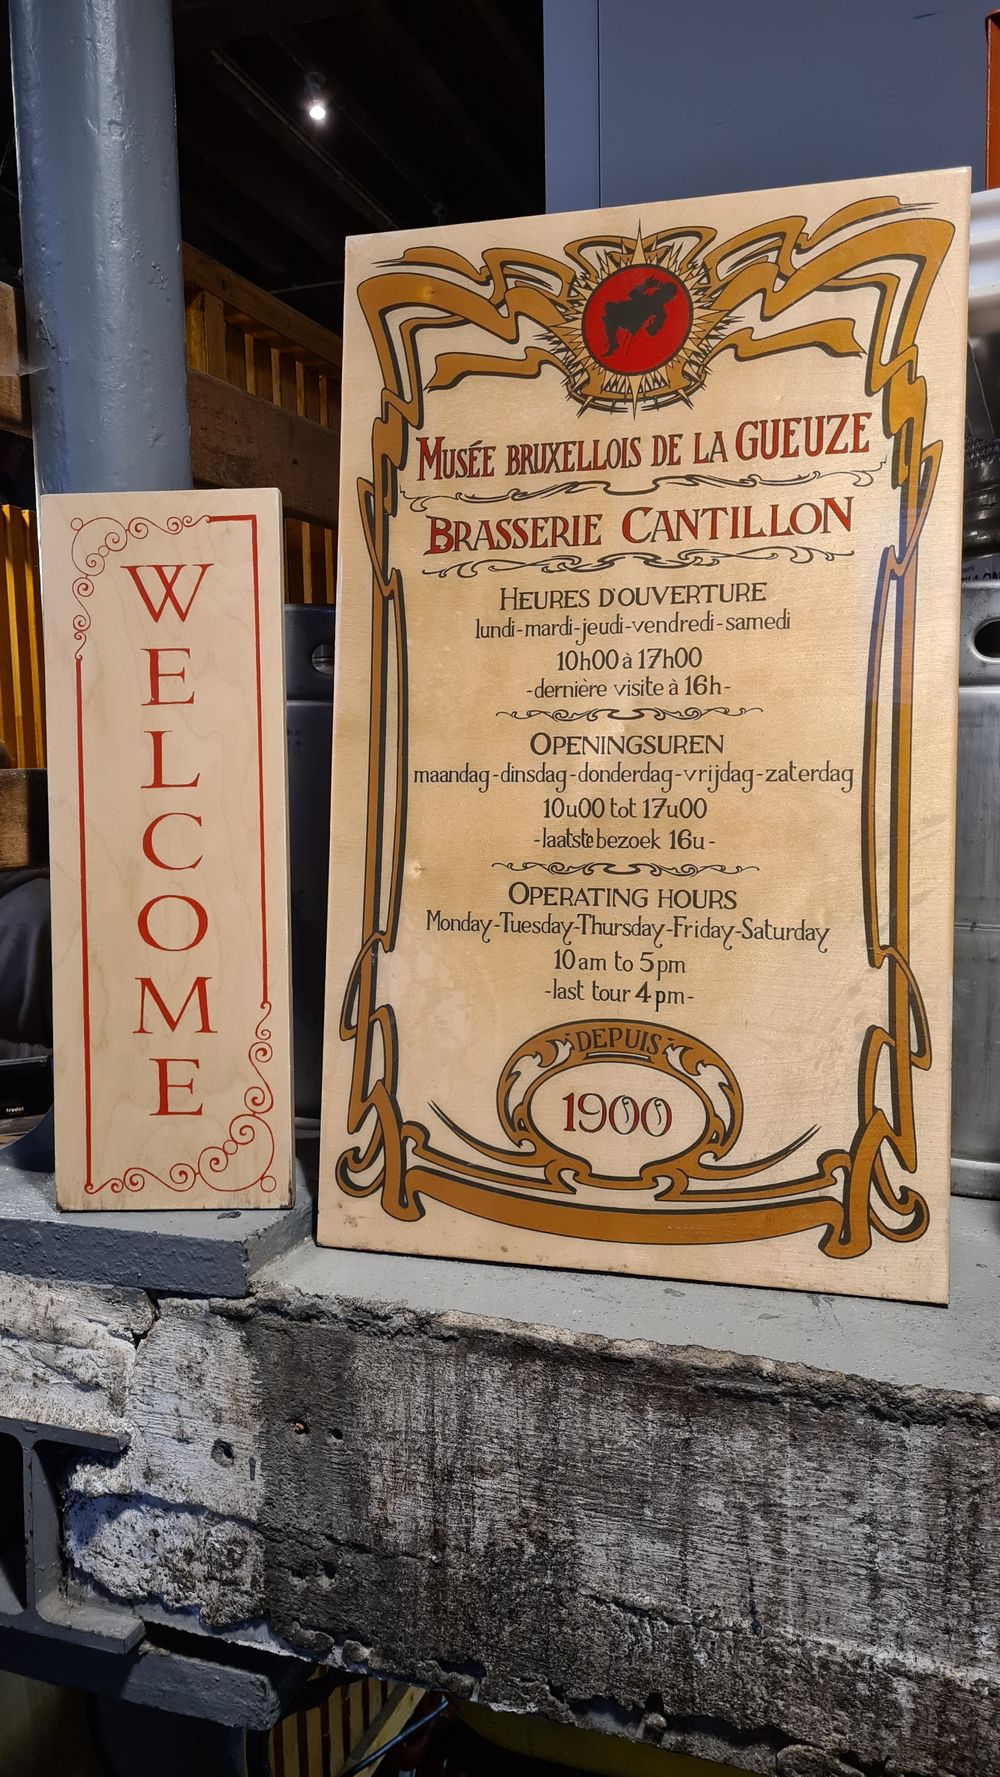 WELCOME
MUSÉE BRUXELLOIS DE LA GUEUZE
BRASSERIE CANTILLON
HEURES D'OUVERTURE
lundi-mardi-jeudi-vendredi-samedi
10h00 à 17h00
-dernière visite à 16h-
OPENINGSUREN
maandag-dinsdag-donderdag-vrijdag-zaterdag
10u00 tot 17u00
-laatste bezoek 16u-
OPERATING HOURS
Monday-Tuesday-Thursday-Friday-Saturday
10 am to 5 pm
-last tour 4 pm-
DEPUIS
1900